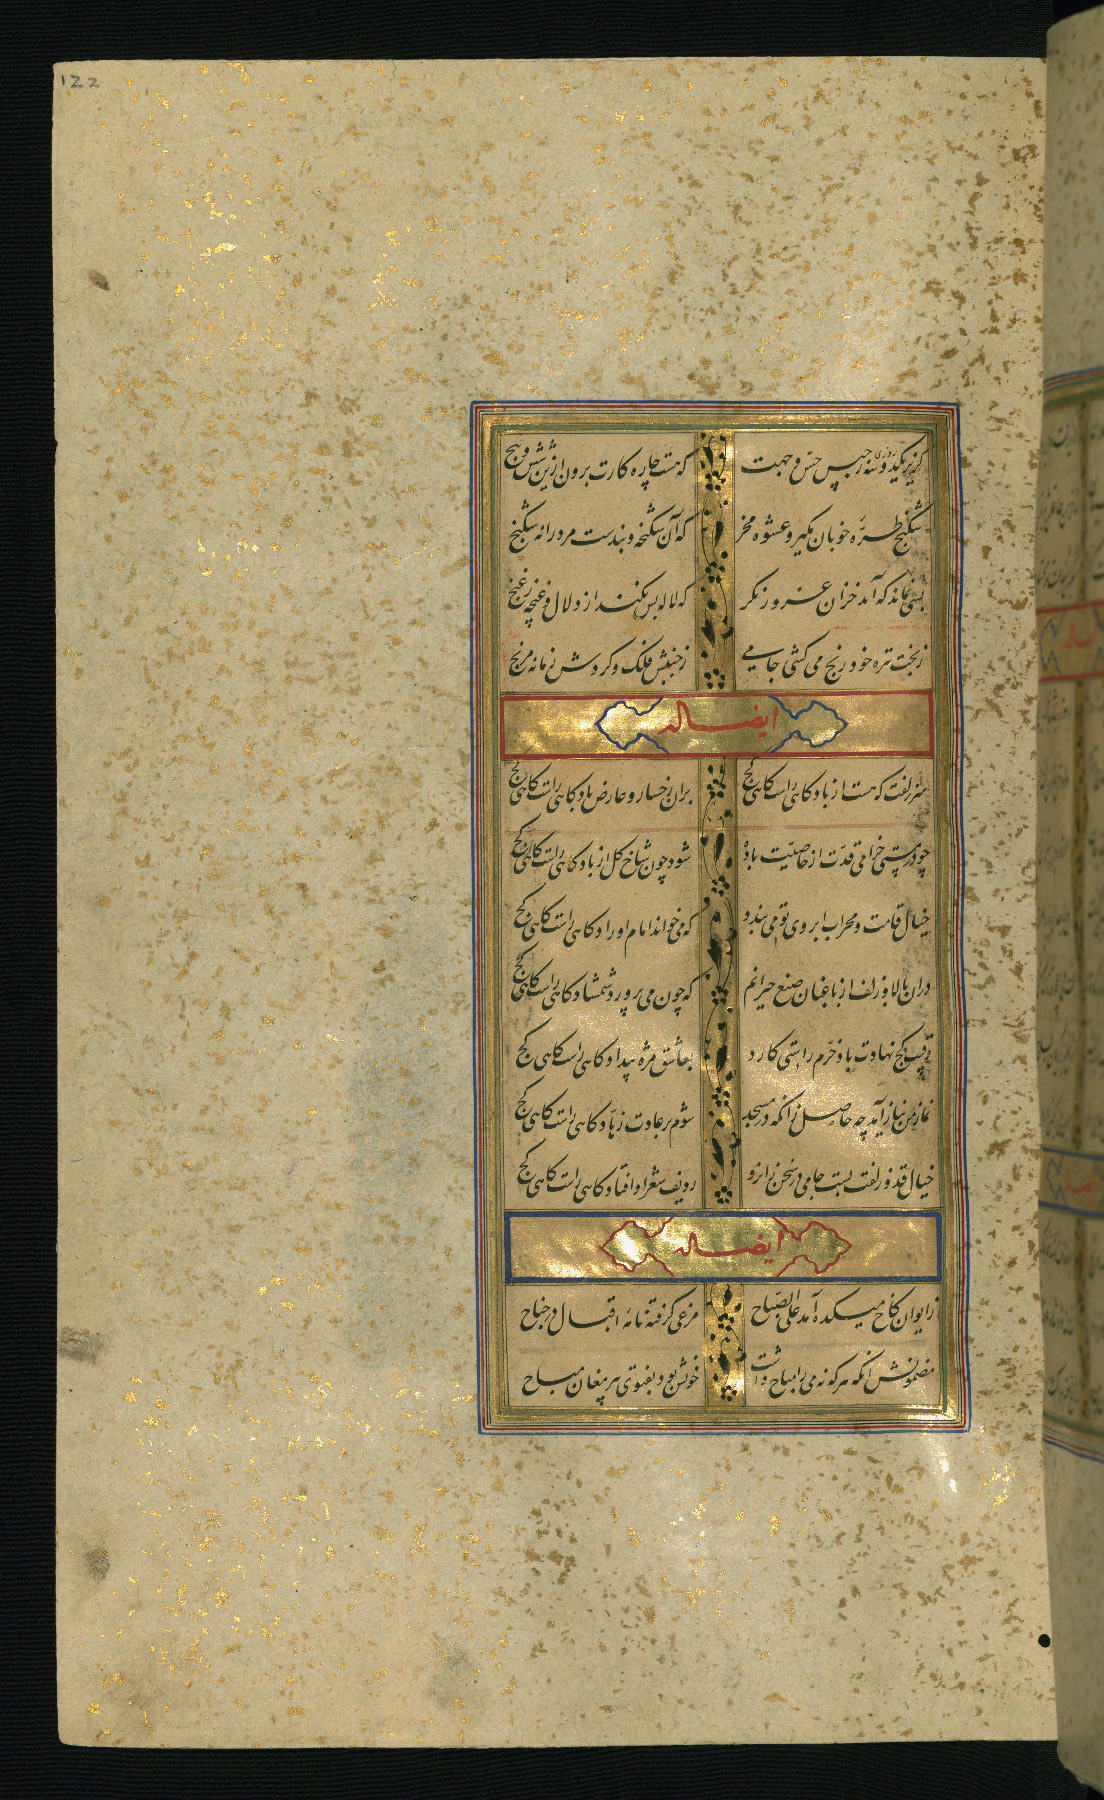 122
که هست چاره کارت برون ازین شش و پنج
شکنج طره خوبان مگیر و عشوه مخر
که آن شکنجه و بندست مرد را نه شکنج
بسی نماند که آمد خزان عمر و مگر
که لاله بس بکند از دلال و غنچه ز غنج
ز بخت تیره خود رنج می کشی جامی
ز جنبش فلک و کردش زمانه مرنج
ایضا له
سر زلفت که هست از باد کاهی راست کاهی کج
بران رخسار و عارض باد کاهی راست کاهی کج
چو در مستی خرامی قدت از خاصیت باده
شود چون شاخ کل از باد کاهی راست کاهی کج
خیال قامت و محراب ابروی تو می بندو
که می خواند امام اوراد کاهی راست کاهی کج
دران بالا و زلف از باغبان صنع حیرانم
که چون می پرورد شمشاد کاهی راست کاهی کج
رقیب کج نهادت باد خرم راستی کارد
بعاشق مژه بیداد کاهی راست کاهی کج
نماز من نیاز آمد چه حاصل زانکه در مسجد
شوم بر عادت زهاد کاهی راست کاهی کج
خیال قد و زلفت بست جامی در سخن زان رو
ردیف شعر او افتاد کاهی راست کاهی کج
ایضا له
از ایوان کاخ میکده آمد علی الصباح
مرغی کرفته نامه اقبال در جناح
مضمونش آنکه هر که نه می را مباح داشت
خونش بود بفتوی پیر مغان مباح